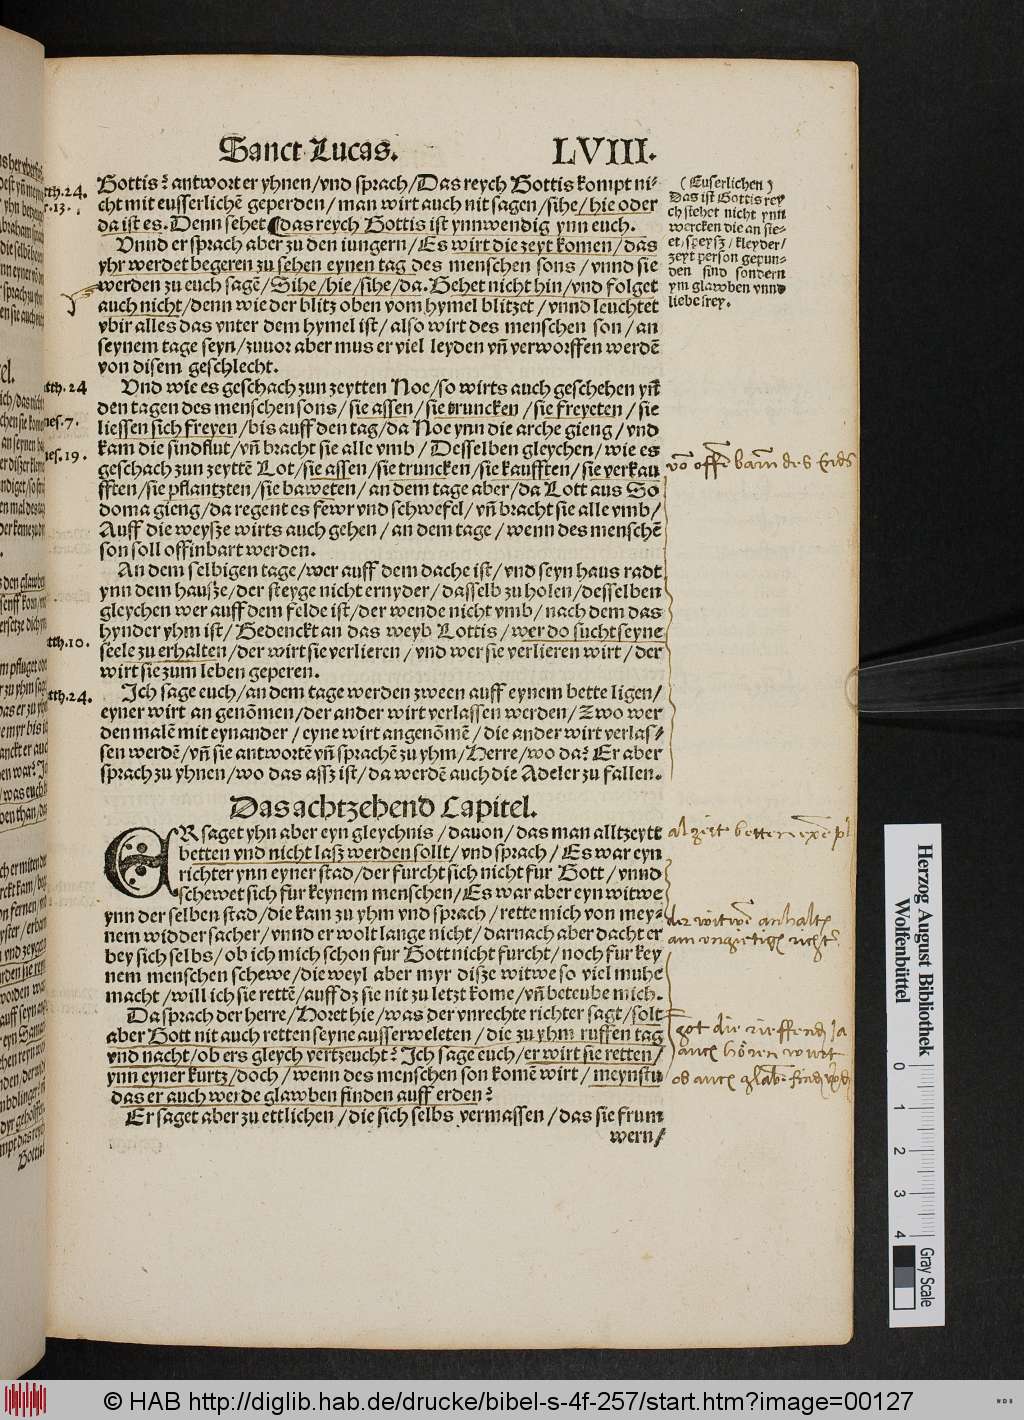 Sanct Lucas. LVIII.
Gottis? antwort er yhnen/vnd sprach/Das reych Gottis kompt ni-
cht mit eusserlichē geperden/man wirt auch nit sagen/sihe/hie oder
da ist es. Denn sehet/das reych Gottis ist ynnwendig ynn euch.
Vnnd er sprach aber zu den iungern/Es wirt die zeyt komen/das
yhr werdet begeren zu sehen eynen tag des menschen sons/vnnd sie
werden zu euch sagē/Sihe/hie/sihe/da. Gehet nicht hin/vnd folget
auch nicht/denn wie der blitz oben vom hymel blitzet/vnnd leuchtet
vbir alles das vnter dem hymel ist/also wirt des menschen son/an
seynem tage seyn/zuuor aber mus er viel leyden vñ verworffen werdē
von disem geschlecht.
Vnd wie es geschach zun zeytten Noe/so wirts auch geschehen yñ
den tagen des menschen sons/sie assen/sie truncken/sie freyeten/sie
liessen sich freyen/bis auff den tag/da Noe ynn die arche gieng/vnd
kam die sindflut/vñ bracht sie alle vmb/Desselben gleychen/wie es
geschach zun zeyttē Lot/sie assen/sie truncken/sie kaufften/sie verkau
fften/sie pflantzten/sie baweten/an dem tage aber/da Lott aus So
doma gieng/da regent es fewr vnd schwefel/vñ bracht sie alle vmb/
Auff die weysze wirts auch gehen/an dem tage/wenn des menschē
son soll offinbart werden.
An dem selbigen tage/wer auff dem dache ist/vnd seyn haus radt
ynn dem hausze/der steyge nicht ernyder/dasselb zu holen/desselben
gleychen wer auff dem felde ist/der wende nicht vmb/nach dem das
hynder yhm ist/Gedenckt an das weyb Lottis/wer do sucht seyne
seele zu erhalten/der wirt sie verlieren/vnd wer sie verlieren wirt/der
wirt sie zum leben geperen.
Ich sage euch/an dem tage werden zween auff eynem bette ligen/
eyner wirt an genōmen/der ander wirt verlassen werden/Zwo wer
den malē mit eynander/eyne wirt angenōmē/die ander wirt verlas-
sen werdē/vñ sie antwortē vñ sprachē zu yhm/Herre/wo da? Er aber
sprach zu yhnen/wo das assz ist/da werdē auch die Adeler zu fallen.
Das achtzehend Capitel.
ER saget yhn aber eyn gleychnis/dauon/das man alltzeytt
betten vnd nicht lasz werden sollt/vnd sprach/Es war eyn
richter ynn eyner stad/der furcht sich nicht fur Gott/vnnd
schewet sich fur keynem menschen/Es war aber eyn witwe
ynn der selben stad/die kam zu yhm vnd sprach/rette mich von mey-
nem widder sacher/vnnd er wolt lange nicht/darnach aber dacht er
bey sich selbs/ob ich mich schon fur Gott nicht furcht/noch fur key
nem menschen schewe/die weyl aber myr disze witwe so viel muhe
macht/will ich sie rettē/auff dz sie nit zu letzt kome/vñ beteube mich.
Da sprach der herre/Horet hie/was der vnrechte richter sagt/solt
aber Gott nit auch retten seyne ausserweleten/die zu yhm ruffen tag
vnd nacht/ob ers gleych vertzeucht? Ich sage euch/er wirt sie retten/
ynn eyner kurtz/doch/wenn des menschen son komē wirt/meynstu
das er auch werde glawben finden auff erden?
Er saget aber zu ettlichen/die sich selbs vermassen/das sie frum
wern/
(Euserlichen)
Das ist Gottis rey
ch stehet nicht ynn
wercken die an ste-
et/speysz/kleyder/
zeyt person gepun-
den sind sondern
ym glawben vnnd
liebe frey.
tth.24.
r.13.
tth.24
nes.7.
nes.19.
tth.10.
tth.24.
des Ends
alzeit betten
der witwē anhaltē
got die
auch hören
ob auch
Herzog August Bibliothek
Wolfenbüttel
0 1 2 3 4
Gray Scale
© HAB http://diglib.hab.de/drucke/bibel-s-4f-257/start.htm?image=00127